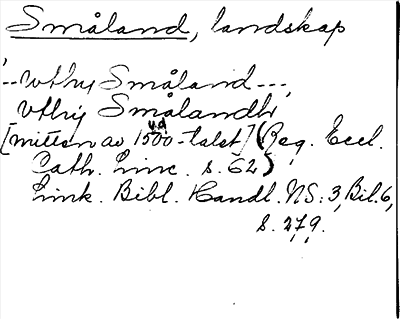 Småland, landskap
-- vthij Småland ---,
vthij Smålandh
[mitten av 1500-talet] (Reg. Eccl.
Cath. Linc. s. 62)
Link. Bibl. Handl. NS: 3, Bil. 6,
s. 279.